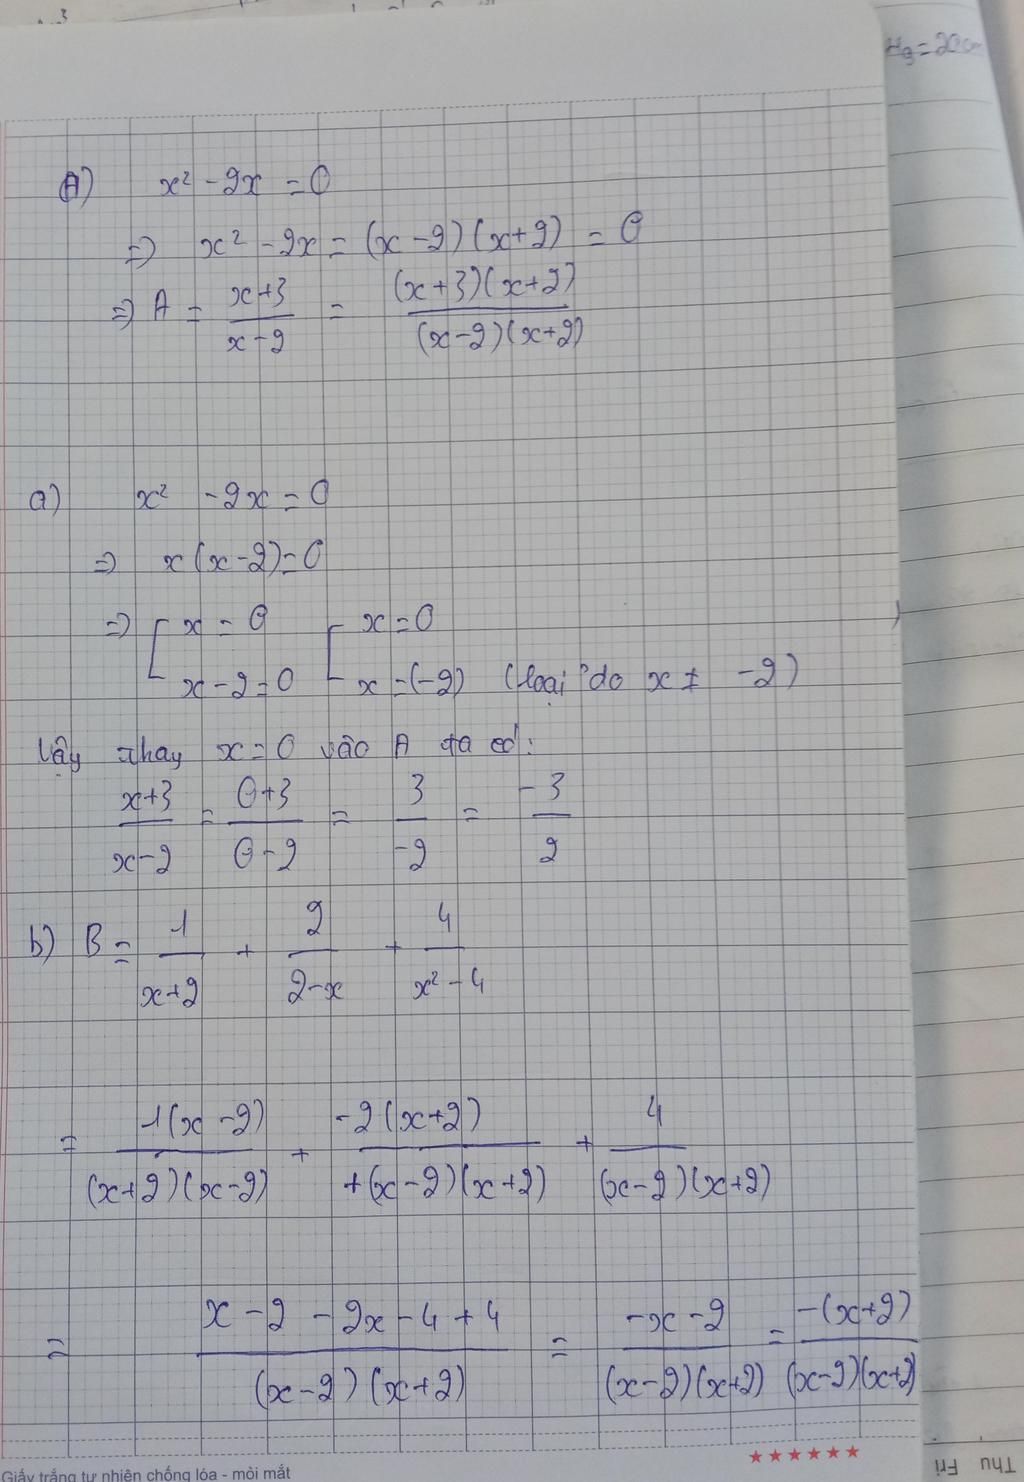 Hg = 20cm
A) x² - 2x = 0
=) x² - 2x = (x - 2)(x + 2) = 0
=) A = \frac{x+3}{x-2} = \frac{(x+3)(x+2)}{(x-2)(x+2)}
a) x² - 2x = 0
=) x(x - 2) = 0
=) [ x = 0 [ x = 0
x - 2 = 0 x = (-2) (loại do x ≠ -2)
Vậy thay x = 0 vào A ta có:
\frac{x+3}{x-2} = \frac{0+3}{0-2} = \frac{3}{-2} = \frac{-3}{2}
b) B = \frac{1}{x+2} + \frac{2}{2-x} + \frac{4}{x²-4}
= \frac{1(x-2)}{(x+2)(x-2)} + \frac{-2(x+2)}{+(x-2)(x+2)} + \frac{4}{(x-2)(x+2)}
= \frac{x-2-2x-4+4}{(x-2)(x+2)} = \frac{-x-2}{(x-2)(x+2)} = \frac{-(x+2)}{(x-2)(x+2)}
Giấy trắng tự nhiên chống lóa - mỏi mắt
Thu Fri